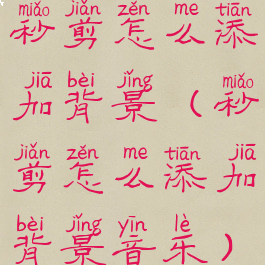 miǎo jiǎn zěn me tiān
秒剪怎么添
jiā bèi jǐng miǎo
加背景（秒
jiǎn zěn me tiān jiā
剪怎么添加
bèi jǐng yīn lè
背景音乐）